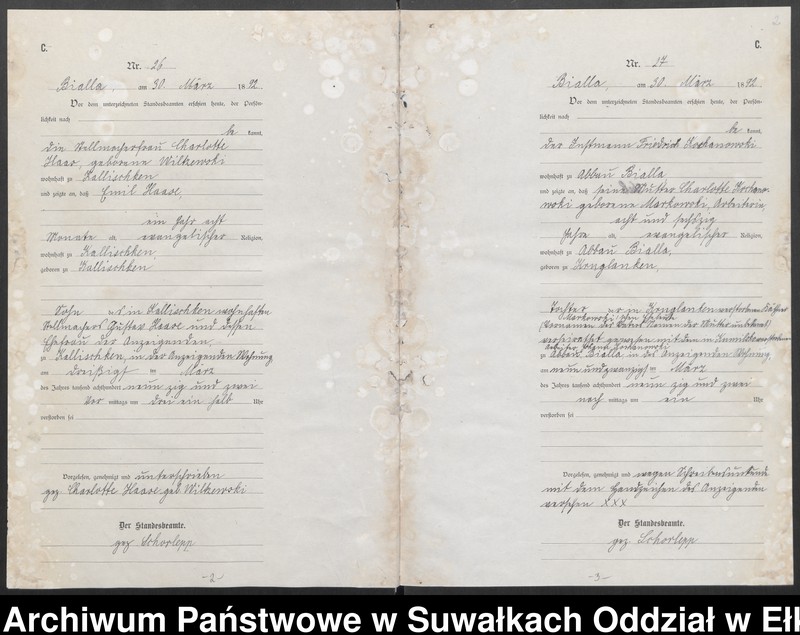 C.
Nr. 26
Bialla, am 30 März 1892
Vor dem unterzeichneten Standesbeamten erschien heute, der Persön-
lichkeit nach
be kannt,
die Stellmacherfrau Charlotte
Haase, geborene Wilkewski
wohnhaft zu Kallischken
und zeigte an, daß Emil Haase,
ein Jahr acht
Monate alt, evangelischer Religion,
wohnhaft zu Kallischken,
geboren zu Kallischken
Sohn des in Kallischken wohnhaften
Stellmachers Gustav Haase und dessen
Ehefrau der Anzeigenden,
zu Kallischken, in der Anzeigenden Wohnung
am dreißigsten März
des Jahres tausend achthundert neun zig und zwei
Vor mittags um drei ein halb Uhr
verstorben sei
Vorgelesen, genehmigt und unterschrieben
gez Charlotte Haase geb. Wilkewski
Der Standesbeamte.
gez Schorlepp
-2-
2
C.
Nr. 27
Bialla, am 30 März 1892.
Vor dem unterzeichneten Standesbeamten erschien heute, der Persön-
lichkeit nach
be kannt,
der Instmann Friedrich Kochanowski
wohnhaft zu Abbau Bialla
und zeigte an, daß seine Mutter Charlotte Kochano-
wski geborene Markowski, Arbeiterin,
acht und sechszig
Jahre alt, evangelischer Religion,
wohnhaft zu Abbau Bialla,
geboren zu Kruglanken,
Tochter des in Kruglanken verstorbenen
Markowski
(Vornamen des Vaters Namen der Mutter unbekannt)
verheirathet gewesen mit dem in verstorbenen
Arbeiter Kochanowski
zu Abbau Bialla in des Anzeigenden Wohnung,
am neun und zwanzigsten März
des Jahres tausend achthundert neun zig und zwei
nach mittags um ein Uhr
verstorben sei
Vorgelesen, genehmigt und wegen Schreibensunkunde
mit dem Handzeichen des Anzeigenden
versehen XXX
Der Standesbeamte.
gez Schorlepp
-3-
Archiwum Państwowe w Suwałkach Oddział w Ełk